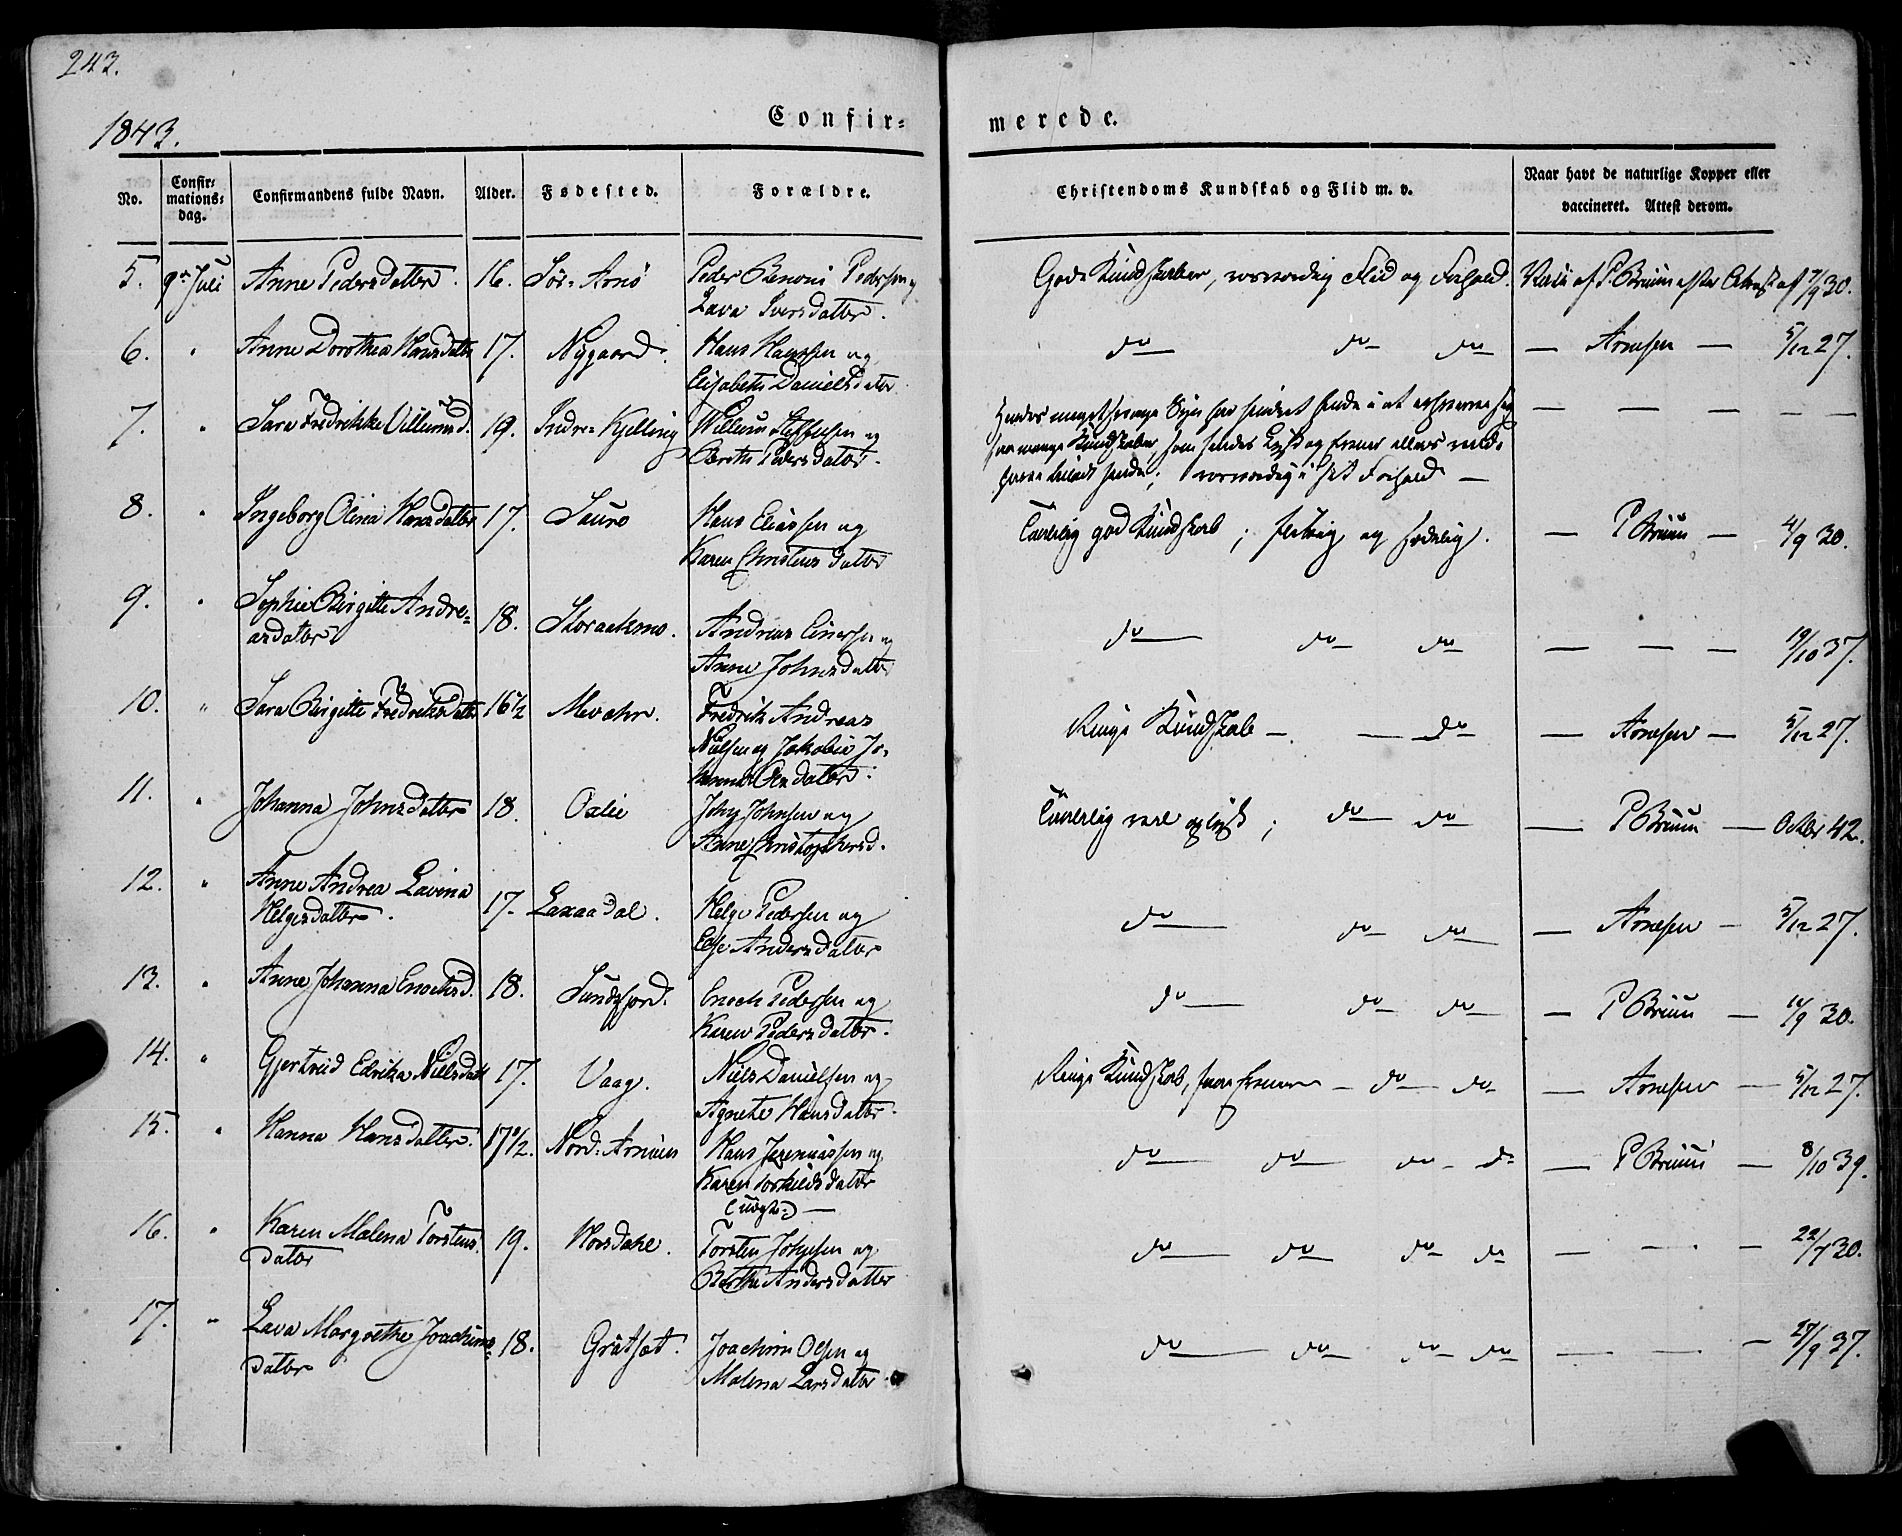 243.
1843.
Confir-
merede.
No.
Confir-
mations-
dag.
Confirmandens fulde Navn.
Alder.
Fødested.
Forældre.
Christendoms Kundskab og Flid m. v.
Naar havt de naturlige Kopper eller
vaccineret. Attest derom.
5. 9de Juli Anne Pedersdatter. 16. Sör-Arnö Peder Benoni Pedersen og
Lava Iversdatter.
Gode Kundskaber, roesværdig Flid og Forhold. Vacc. af P. Bruun efter Attest af 7/9 30.
6. " Anne Dorothea Hansdatter 17. Nygaard. Hans Hanssen og
Elisabeth Danielsdatter
do do do — Arnesen — 5/12 27.
7. " Sara Fredrikke Villumsd. 19. Indre-Kjelling Willum Steffensen og
Berethe Pedersdatter.
Hendes meget svage Syn har hindret hende i at erhverve sig
saa mange Kundskaber, som hendes Lyst og Evner ellers vilde
have hende; roesværdig i sit Forhold —
8. " Ingeborg Olina Hansdatter 17. Sauro Hans Eliassen og
Karen Christensdatter
Taalelig god Kundskab; flittig og sædelig. — P Bruun — 4/9 30.
9. " Sophie Birgitte Andre-
asdatter 18. Storackermo. Andreas Einersen og
Anne Johnsdatter
do do do — — — 19/10 37.
10. " Sara Birgitte Fredriksdatter 16 1/2 Mevær. Fredrik Andreas
Nielsen og Jakobia Jo-
hanna Olsdatter.
Ringe Kundskab — — do — Arnesen — 5/12 27.
11. " Johanna Johnsdatter 18. Oxlie John Johnsen og
Anne Christophersd.
Taalelig vel oplyst; do do — P Bruun — Octbr 42.
12. " Anne Andrea Lavina
Helgesdatter. 17. Laxaadal. Helge Pedersen og
Else Andersdatter
do do do — Arnesen — 5/12 27.
13. " Anne Johanna Enochsd. 18. Sundsfjord. Enoch Pedersen og
Karen Pedersdatter.
do do do — P Bruun — 14/9 30.
14. " Gjertrud Edvika Nielsdatt 17. Vaag. Niels Danielsen og
Agnete Hansdatter.
Ringe Kundskab, svage Evner — do do — Arnesen — 5/12 27.
15. " Hanna Hansdatter. 17 1/2. Nord-Arnöen Hans Jeremiassen og
Karen Torkildsdatter
(uægte) —
do do do do — P Bruun — 8/10 39.
16. " Karen Malena Torstens-
datter 19. Horsdahl. Torsten Johnsen og
Berthe Andersdatter
do do do do — — — 22/7 30.
17. " Lava Margrethe Joachims-
datter 18. Gråtset. Joachim Olsen og
Malena Larsdatter.
do do do do — — — 27/9 37.